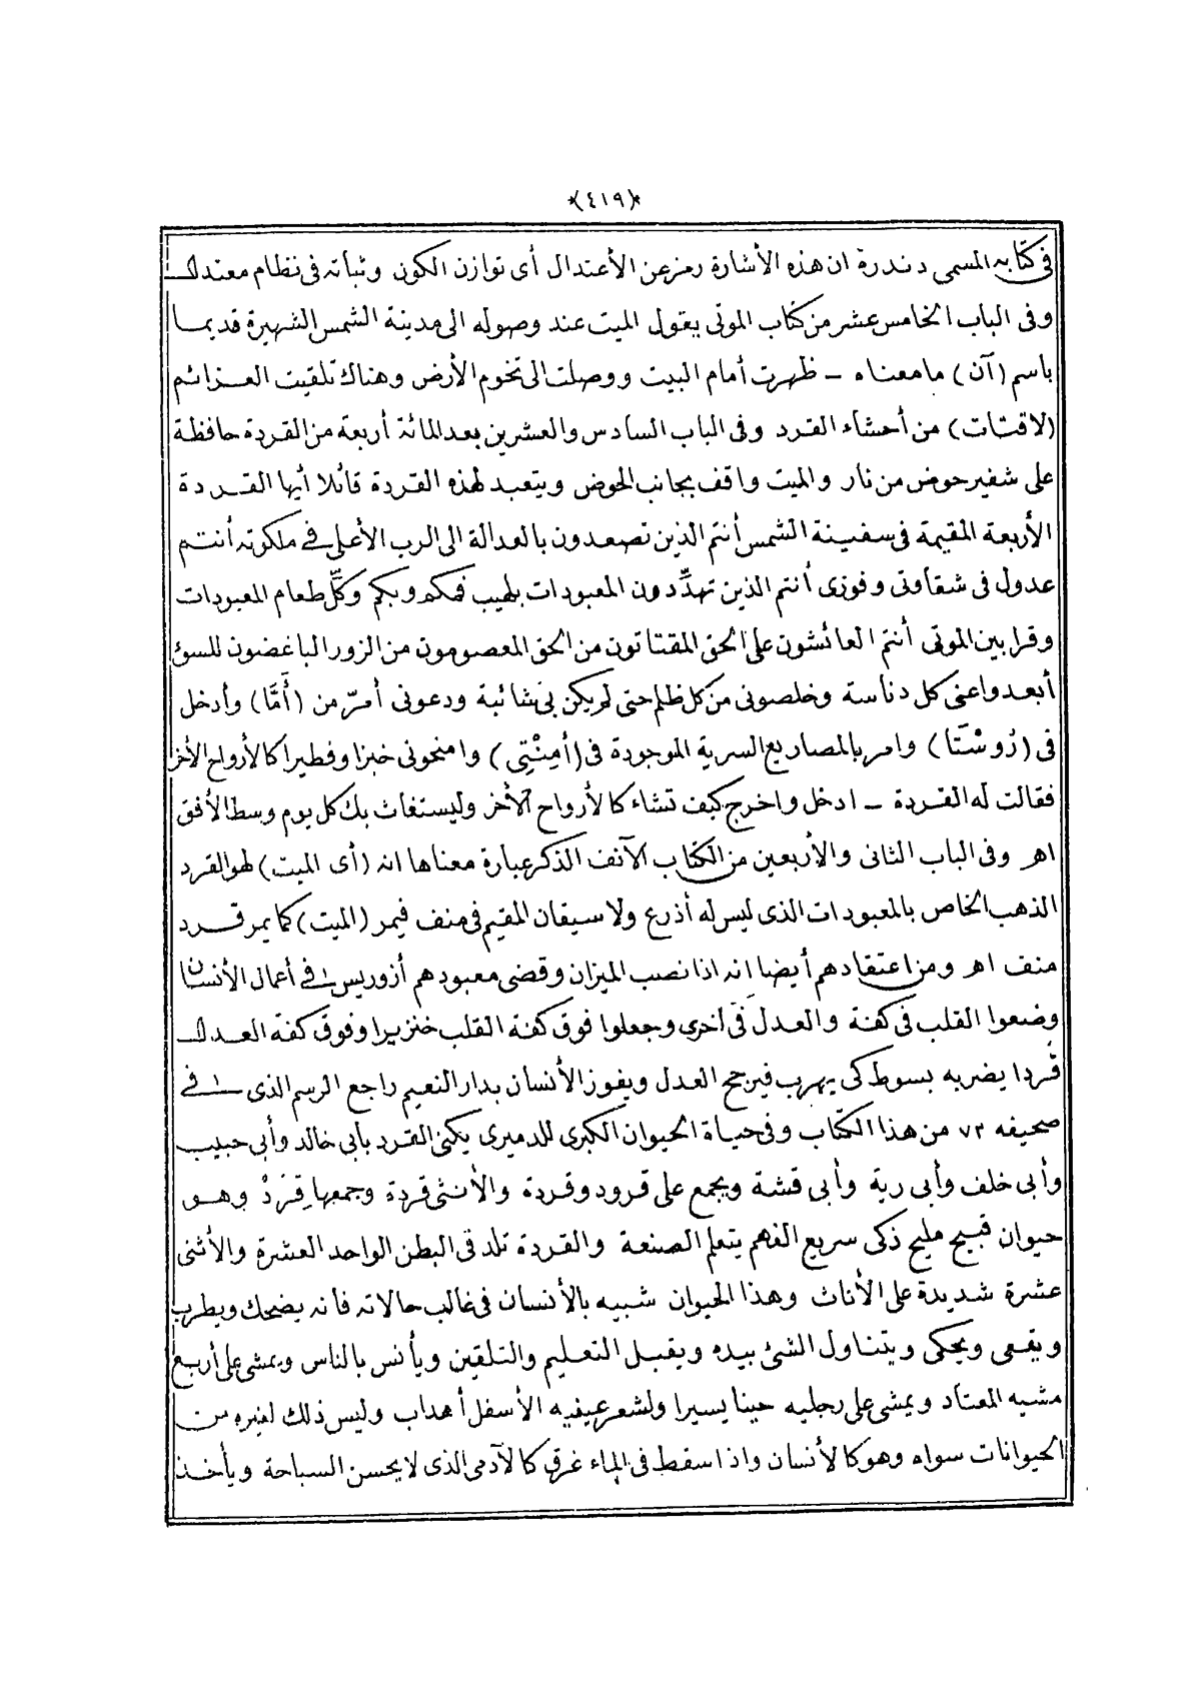 *(٤١٩)*
فى كتابه المسمى دندرة ان هذه الأشارة رمز عن الأعتدال أى توازن الكون وثباته فى نظام معتدل
وفى الباب الخامس عشر من كتاب الموتى يقول الميت عند وصوله الى مدينة الشمس الشهيرة قديما
باسم (آن) ما معناه – ظهرت أمام البيت ووصلت الى تخوم الأرض وهناك تلقيت العزائم
(لاقتات) من أحشاء القرد وفى الباب السادس والعشرين بعد المائة أربعة من القردة حافظة
على شفير حوض من نار والميت واقف بجانب الحوض ويتعبد لهذه القردة قائلا أيها القردة
الأربعة المقيمة فى سفينة الشمس أنتم الذين تصعدون بالعدالة الى الرب الأعلى فى ملكوته أنتم
عدول فى شقاوتى وفوزى أنتم الذين تهدّدون المعبودات بلهيب فمكم وبكم وكلّ طعام المعبودات
وقرابين الموتى أنتم العائشون على الحق المقتاتون من الحق المعصومون من الزور الباغضون للسوء
أبعدوا عنى كل دناسة وخلصونى من كل ظلم حتى لم يكن بى شائبة ودعونى أمرّ من (أَمَّا) وأدخل
فى (رُوسْتَا) وامر بالمصاريع السرية الموجودة فى (أمِنْتِى) وامنحونى خبزا وفطيرا كالأرواح الأخر
فقالت له القردة – ادخل واخرج كيف تشاء كالأرواح الأخر وليستغاث بك كل يوم وسط الأفق
اهر وفى الباب الثانى والأربعين من الكتاب الآنف الذكر عبارة معناها انه (أى الميت) لهو القرد
الذهب الخاص بالمعبودات الذى ليس له أذرع ولا سيقان المقيم فى منف فيمر (الميت) كما يمر قرد
منف اهر ومن اعتقادهم أيضا انه اذا نصب الميزان وقضى معبودهم أزوريس فى أعمال الأنسان
وضعوا القلب فى كفة والعدل فى أخرى وجعلوا فوق كفة القلب خنزيرا وفوق كفة العدل
قردا يضربه بسوط كى يهرب فيرجح العدل ويفوز الأنسان بدار النعيم راجع الرسم الذى فى
صحيفه ٧٣ من هذا الكتاب وفى حياة الحيوان الكبرى للدميرى يكنى القرد بأبى خالد وأبى حبيب
وأبى خلف وأبى رية وأبى قشة ويجمع على قرود وقردة والأنثى قردة وجمعها قِرَدْ وهو
حيوان قبيح مليح ذكى سريع الفهم يتعلم الصنعة والقردة تلد فى البطن الواحد العشرة والأثنى
عشرة شديدة على الأناث وهذا الحيوان شبيه بالأنسان فى غالب حالاته فانه يضحك ويطرب
ويقعى ويحكى ويتناول الشئ بيده ويقبل التعليم والتلقين ويأنس بالناس ويمشى على أربع
مشيه المعتاد ويمشى على رجليه حينا يسيرا ولشعر عينيه الأسفل أهداب وليس ذلك لغيره من
الحيوانات سواه وهو كالأنسان واذا سقط فى الماء غرق كالآدمى الذى لا يحسن السباحة ويأخذ